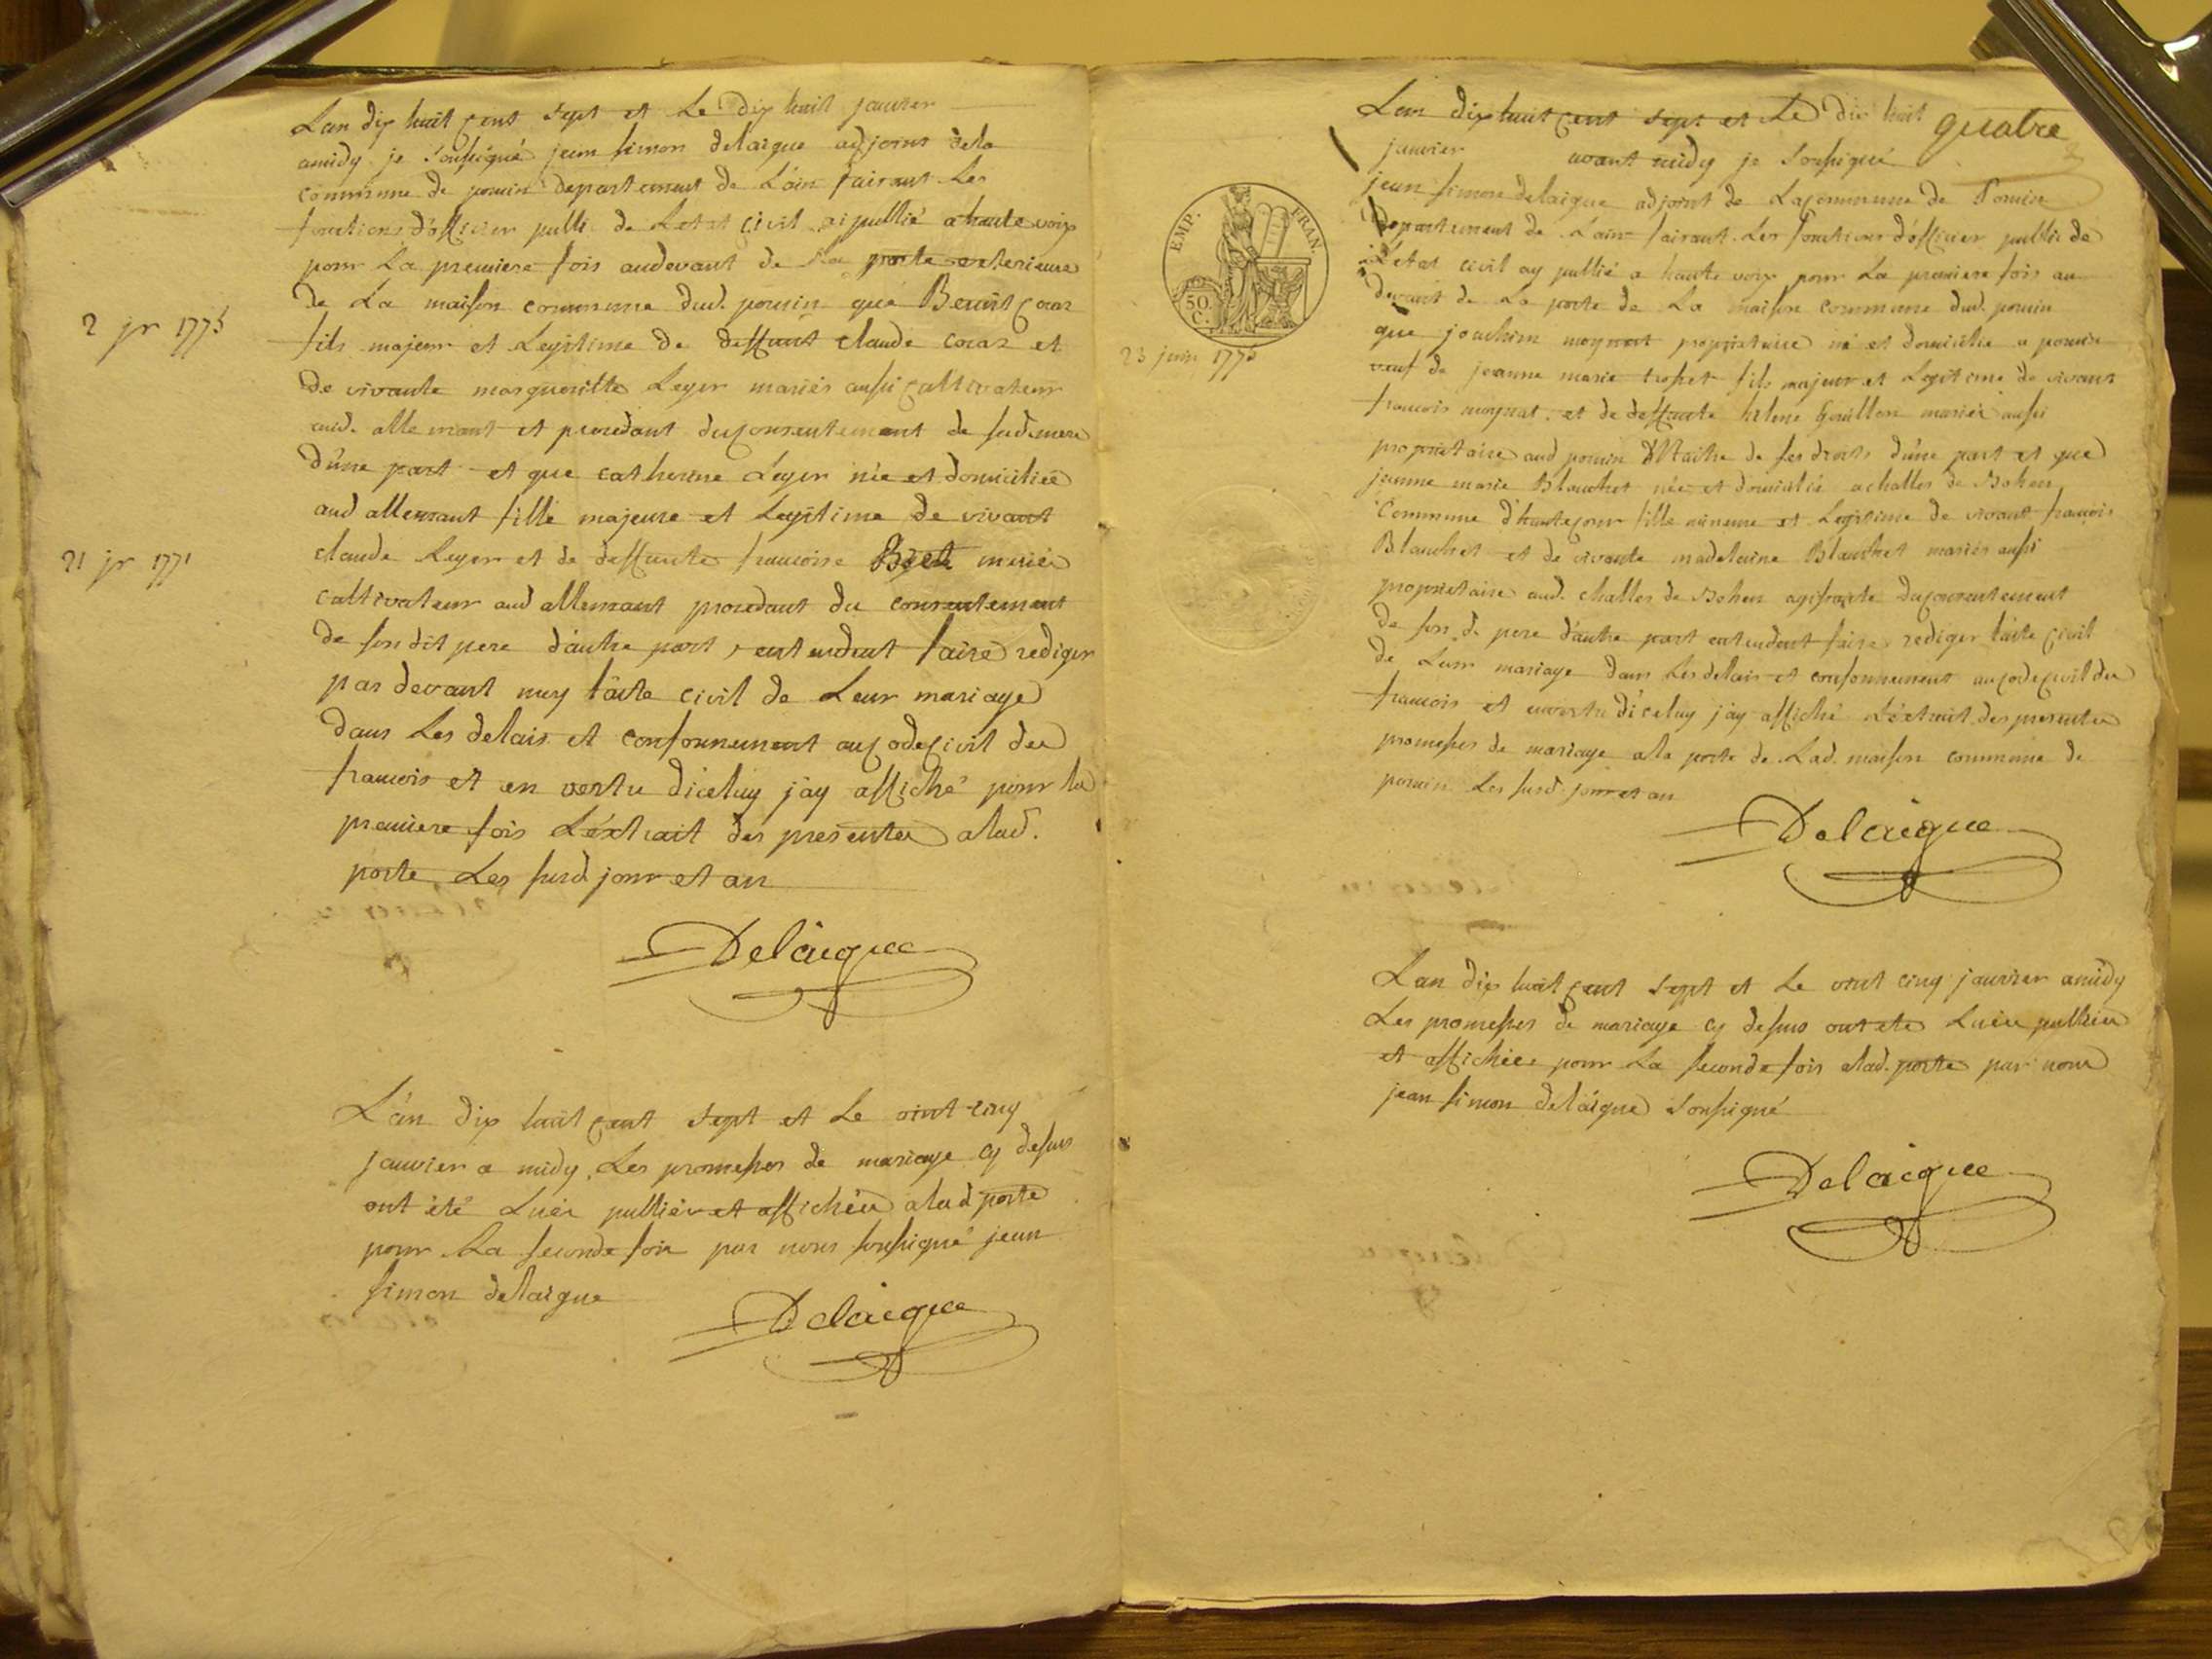 Lan dix huit cent sept et Le dix huit janvier
amidy je soussigné jean simon delaigue adjoint dela
commune de poncin departement de L'ain fairant Les
fonctions d'officier publi de Letat civil ai publié ahaute voix
pour La premiere fois audevant de la porte exterieure
de La maison commune dud. poncin que Benoit Coraz
2 jr 1775
fils majeur et Legitime de deffunt claude coraz et
de vivante margueritte Leger mariés aussi cultivateur
aud. allemant et procedant duconsentement de sad. mere
d'une part et que catherine Leger née et domiciliée
aud allemant fille majeure et Legitime de vivant
21 jr 1771
claude Leger et de deffunte francoise mariés
cultivateur aud allemant procedant du consentement
de son dit pere d'autre part, entendent faire rediger
par devant moy l'acte civil de Leur mariage
dans Les delais et conformement aucodecivil des
francois et en vertu d'iceluy j'ay affiché pour la
premiere fois L'extrait des presentes alad.
porte, Les susd jour et an
Delaigue
L'an dix huit cent sept et Le vint-cinq
janvier a midy, Les promesses de mariage cy dessus
ont été Lues publiés et affichées alad porte
pour La seconde fois par nous soussigné jean
simon delaigue
Delaigue
quatre
Lan dix huit cent sept et Le dix huit
janvier avant midy je soussigné
EMP. FRAN
50 C.
jean simon delaigue adjoint de Lacommune de Poncin
Departement de L'ain fairant Les fonctions d'officier public de
L'etat civil ay publié a haute voix pour La premiere fois au
devant de La porte de La maison commune dud. poncin
que joachim moynat proprietaire né et domicilié a poncin
23 juin 1775
veuf de jeanne marie fils majeur et Legitime de vivant
francois moynat et de deffunte helene Gouillon mariés aussi
proprietaire aud poncin Maitre de ses droits d'une part et que
jeanne marie Blanchet née et domicilié achalles de Bohen
Commune d'hautecour fille mineure et Legitime de vivant francois
Blanchet et de vivante madelaine Blanchet mariés aussi
proprietaire aud. challes de Bohen agissante duconsentement
de son d. pere d'autre part entendent faire rediger l'acte civil
de Leur mariage dans Les delais et conformement aucodecivil des
francois et envertu d'iceluy j'ay affiché L'extrait des presentes
promesses de mariage ala porte de Lad. maison commune de
poncin Les susd jour et an
Delaigue
Lan dix huit cent sept et Le vint cinq janvier amidy
Les promesses de mariage cy dessus ont été Lues publiées
et affichées pour La seconde fois alad. porte par nous
jean simon delaigue soussigné
Delaigue